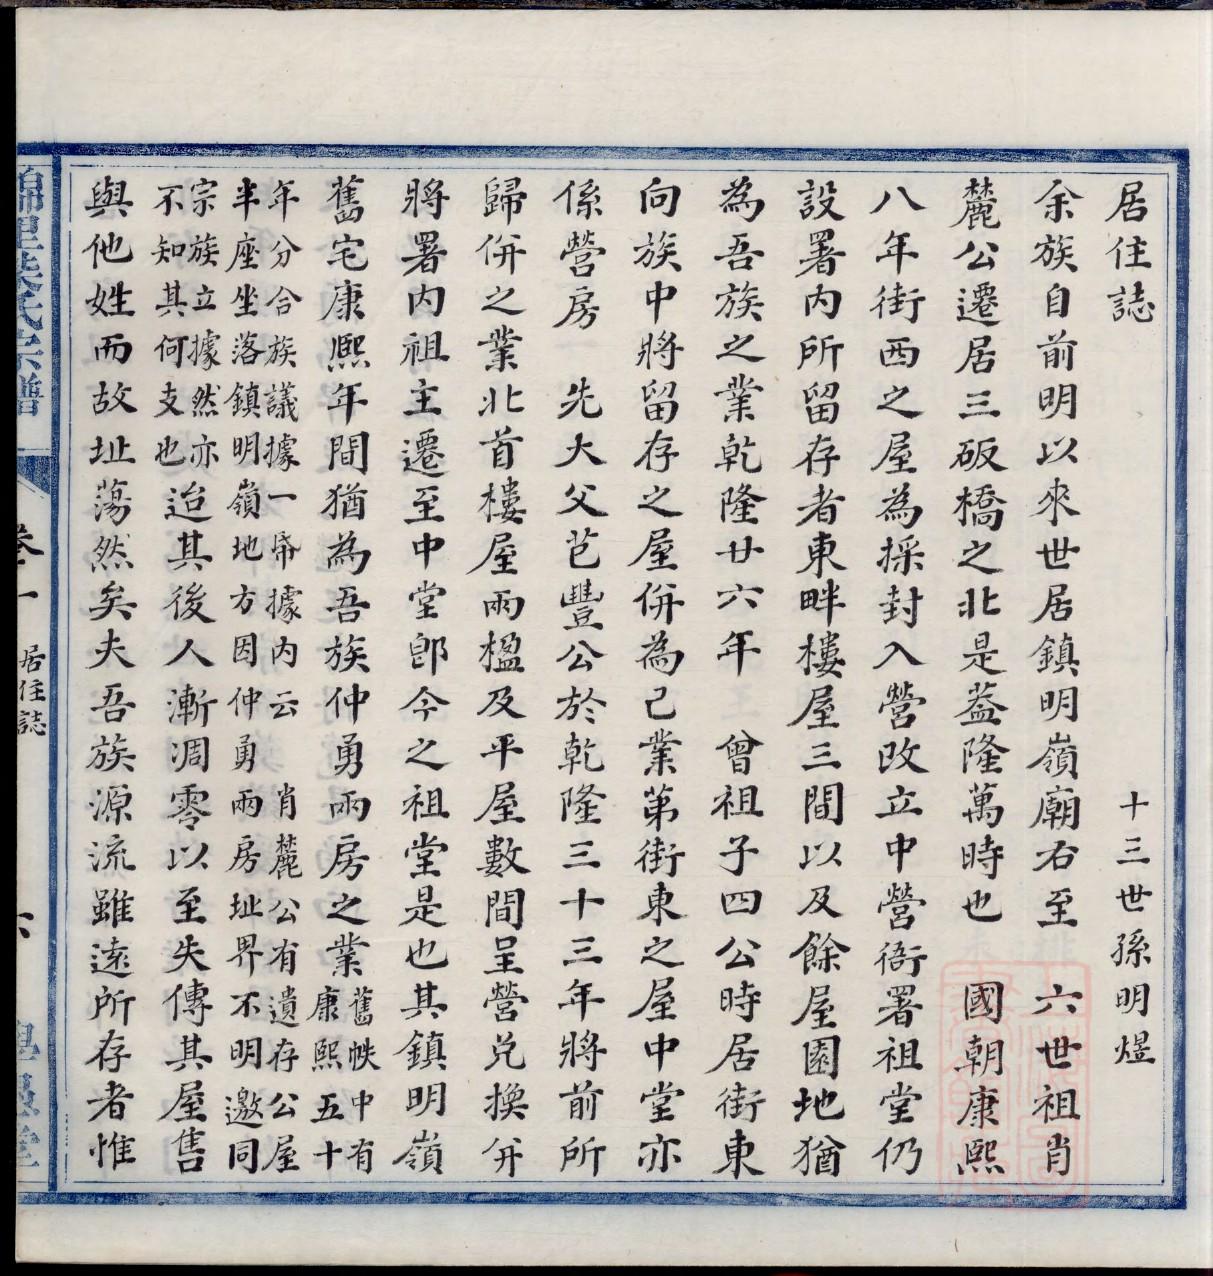 居住誌
十三世孫明煜
余族自前明以來世居鎮明嶺廟右至　六世祖肖
麓公遷居三板橋之北是葢隆萬時也　國朝康熙
八年街西之屋為採封入營改立中營衙署祖堂仍
設署內所留存者東畔樓屋三間以及餘屋園地猶
為吾族之業乾隆廿六年　曾祖子四公時居街東
向族中將留存之屋併為己業第街東之屋中堂亦
係營房　先大父芑豐公於乾隆三十三年將前所
歸併之業北首樓屋兩楹及平屋數間呈營兌換并
將署內祖主遷至中堂卽今之祖堂是也其鎮明嶺
舊宅康熙年間猶為吾族仲勇兩房之業
舊帙中有
康熙五十
年分合族議據一帋據內云　肖麓公有遺存公屋
半座坐落鎮明嶺地方因仲勇兩房址界不明邀同
宗族立據然亦
不知其何支也
迨其後人漸凋零以至失傳其屋售
與他姓而故址蕩然矣夫吾族源流雖遠所存者惟
氏宗譜
卷一
居住誌
六